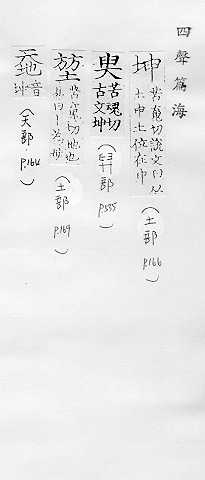 四聲篇海
坤 苦䰟切說文曰从
土申土位在申
(土部 p.166)
臾 苦魂切
古文坤
p.555)
苦䰟切地也
(土部 p.169)
音
坤
(天部 p.164)